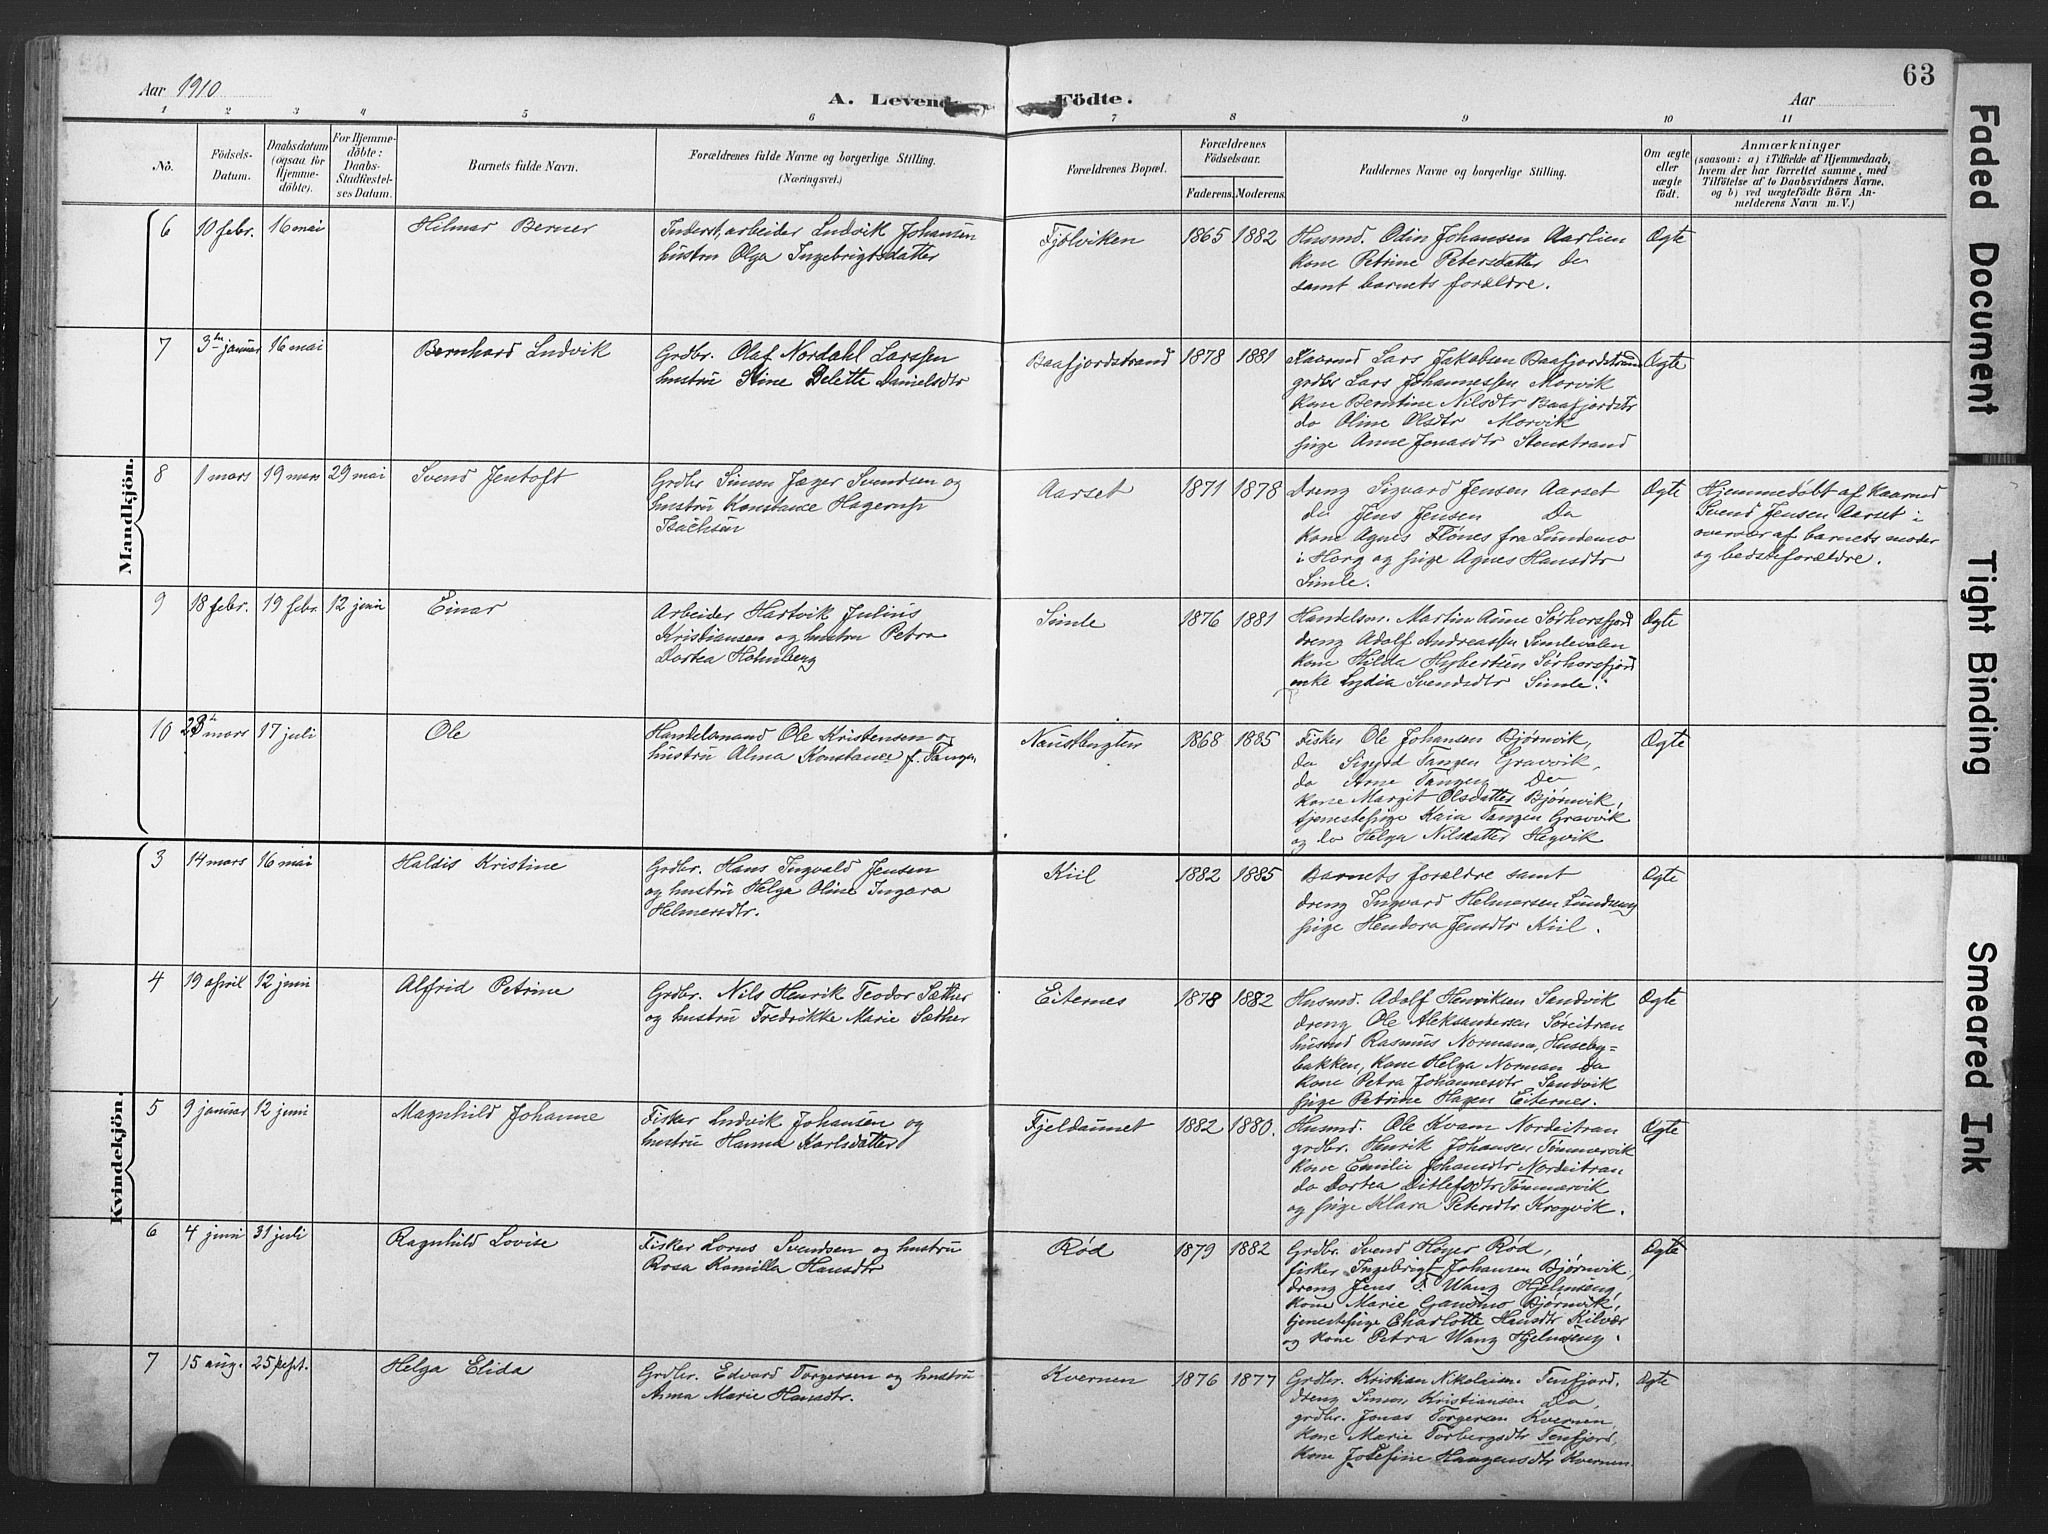 63
Aar 1910
A. Levende Födte.
Aar
1 2 3 4 5 6 7 8 9 10 11
No.
Födsels-
Datum.
Daabsdatum
(ogsaa for
Hjemme-
döbte).
For Hjemme-
döbte:
Daabs-
Stadfæstel-
ses Datum.
Barnets fulde Navn.
Forældrenes fulde Navne og borgerlige Stilling.
(Næringsvei.)
Forældrenes Bopæl.
Forældrenes
Födselsaar.
Faderens. Moderens.
Faddernes Navne og borgerlige Stilling.
Om ægte
eller
uægte
födt.
Anmærkninger
(saasom: a) i Tilfælde af Hjemmedaab,
hvem der har forrettet samme, med
Tilföielse af to Daabsvidners Navne,
og b) ved uægtefödte Börn An-
melderens Navn m. V.)
Mandkjön.
6 10 febr. 16 mai
Hilmar Berner
Inderst, arbeider Ludvik Johansen
hustru Olga Ingebrigtsdatter
Fjølviken
1865 1882
Husmd. Odin Johansen Aarlien
kone Petrine Petersdatter do
samt barnets forældre.
Ægte
7 3die januar 16 mai
Bernhard Ludvik
Grdbr. Olaf Nordahl Larssen
hustru Stine Delette Danielsdtr
Baafjordstrand
1878 1881
Kaarmd Lars Jakobsen Baafjordstrand
grdbr Lars Johannessen Morvik
kone Berntine Nilsdtr Baafjordstr
do Oline Olsdtr Morvik
pige Anne Jonasdtr Stenstrand
Ægte
8 1 mars 19 mars 29 mai
Svend Jentoft
Grdbr Simon Jæger Svendsen og
hustru Konstance Hagerup
Isachsen
Aarset
1871 1878
Dreng Sigvard Jensen Aarset
do Jens Jensen Do
kone Agnes Flønes fra Lundemo
i Horg og pige Agnes Hansdtr
Simle.
Ægte
Hjemmedøbt af Kaarmd
Svend Jensen Aarset i
overvær af barnets moder
og bedsteforældre.
9 18 febr. 19 febr. 12 juni
Einar
Arbeider Hartvik Julius
Kristiansen og hustru Petra
Dortea Holmberg
Simle
1876 1881
Handelsm. Martin Aune Sørhorsfjord
dreng Adolf Andreassen Simlevalen
kone Hilda Hybertsen Sørhorsfjord
enke Lydia Svendsdtr Simle.
Ægte
10 28 mars 17 juli
Ole
Handelsmand Ole Kristensen og
hustru Alma Konstance f. Tangen
Naustbugten
1868 1885
Fisker Ole Johansen Bjørnvik,
do Sigurd Tangen Gravvik,
do Arne Tangen Do
kone Margit Olsdatter Bjørnvik,
tjenestepige Kaia Tangen Gravvik
og do Helga Nilsdatter Hegvik
Ægte
Kvindekjön.
3 14 mars 16 mai
Haldis Kristine
Grdbr. Hans Ingvald Jensen
og hustru Helga Oline Ingara
Helmersdtr.
Kiil
1882 1885
Barnets forældre samt
dreng Ingvard Helmersen Lundseng
pige Hendora Jensdtr Kiil.
Ægte
4 19 april 12 juni
Alfrid Petrine
Grdbr. Nils Henrik Teodor Sæther
og hustru Fredrikke Marie Sæther
Eiternes
1878 1882
Husmd. Adolf Henriksen Sandvik
dreng Ole Aleksandersen Søreitran
husmd Rasmus Normann, Huseby-
bakken, kone Helga Norman do
kone Petra Johannesdtr Sandvik
pige Petrine Hagen Eiternes.
Ægte
5 9 januar 12 juni
Magnhild Johanne
Fisker Ludvik Johansen og
hustru Hanna Karlsdatter
Fjeldaunet
1882 1880.
Husmd. Ole Kvam Nordeitran
grdbr. Henrik Johansen Tømmervik
kone Emilie Johansdtr Nordeitran
do Dortea Ditlefsdtr Tømmervik
og pige Klara Petersdtr Krogvik.
Ægte
6 4 juni 31 juli
Ragnhild Lovise
Fisker Lorns Svendsen og hustru
Rosa Kamilla Hansdtr
Rød
1879 1882
Grdbr. Svend Høyer Rød,
fisker Ingebrigt Johansen Bjørnvik,
dreng Jens F. Wang Hjelmseng,
kone Marie Gansmo Bjørnvik,
tjenestepige Charlotte Hansdtr Kilvær
og kone Petra Wang Hjelmseng.
Ægte
7 15 aug. 25 sept.
Helga Elida
Grdbr. Edvard Torgersen og hustru
Anna Marie Hansdtr.
Kvernen
1876 1877
Grdbr. Kristian Nikolaisen Tenfjord.
dreng Simon Kristiansen Do,
grdbr. Jonas Torgersen Kvernen
kone Marie Torbergsdtr Tenfjord,
kone Josefine Haagensdtr Kvernen.
Ægte
Faded Document
Tight Binding
Smeared Ink